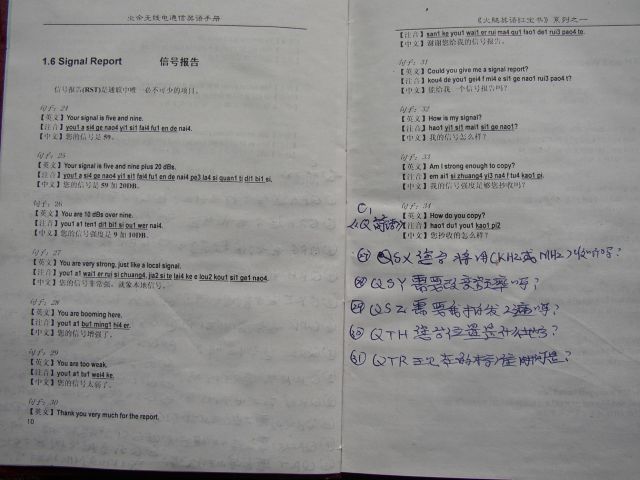 业余无线电通信英语手册
1.6 Signal Report 信号报告
信号报告(RST)是通联中唯一必不可少的项目。
句子: 24
【英文】Your signal is five and nine.
【注音】you1 a si4 ge nao4 yi1 si1 fai4 fu1 en de nai4.
【中文】您的信号是 59。
句子: 25
【英文】Your signal is five and nine plus 20 dBs.
【注音】you1 a si4 ge nao4 yi1 si1 fai4 fu1 en de nai4 pe3 la4 si quan1 ti dit1 bi1 si.
【中文】您的信号是 59 加 20DB.
句子: 26
【英文】You are 10 dBs over nine.
【注音】you1 a1 ten1 dit1 bi1 si ou1 wer nai4.
【中文】您的信号强度是 9 加 10DB.
句子: 27
【英文】You are very strong, just like a local signal.
【注音】you1 a1 wai1 er rui si chuang4, jia2 si te lai4 ke e lou2 kou1 si1 ge1 nao4.
【中文】您的信号非常强,就象本地信号。
句子: 28
【英文】You are booming here.
【注音】you1 a1 bu1 ming1 hi4 er.
【中文】您的信号增强了。
句子: 29
【英文】You are too weak.
【注音】you1 a1 tu1 wei4 ke.
【中文】您的信号太弱了。
句子: 30
【英文】Thank you very much for the report.
10
《火腿英语红宝书》系列之一
【注音】san1 ke you1 wai1 er rui ma4 qu1 fao1 de1 rui3 pao4 te.
【中文】谢谢您给我的信号报告。
句子: 31
【英文】Could you give me a signal report?
【注音】kou4 de you1 gei4 f mi4 e si1 ge nao1 rui3 pao4 t?
【中文】能给我一个信号报告吗?
句子: 32
【英文】How is my signal?
【注音】hao1 yi1 si1 mai1 si1 ge nao1?
【中文】我的信号怎么样?
句子: 33
【英文】Am I strong enough to copy?
【注音】em ai1 si zhuang4 yi3 na4 f tu4 kao1 pi.
【中文】我的信号强度足够您抄收吗?
句子: 34
【英文】How do you copy?
【注音】hao1 du1 you1 kao1 pi2
【中文】您抄收的怎么样?
QSX 用(KHZ或MHZ)收听吗?
QSY 需要改变频率吗?
QSZ 需要每
QTH 位置是什么地方?
QTR 标准时间是?